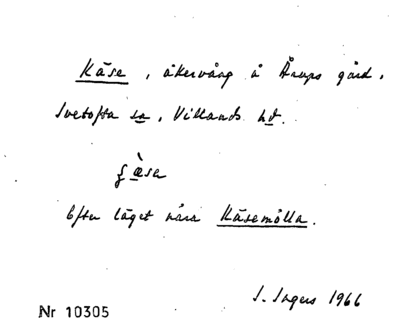 Käse, åkervång å Årups gård.
Ivetofta sn, Villands hd.
ʃæ̀sa
Efter läget nära Käsemölla.
S. Ingers 1966
Nr 10305